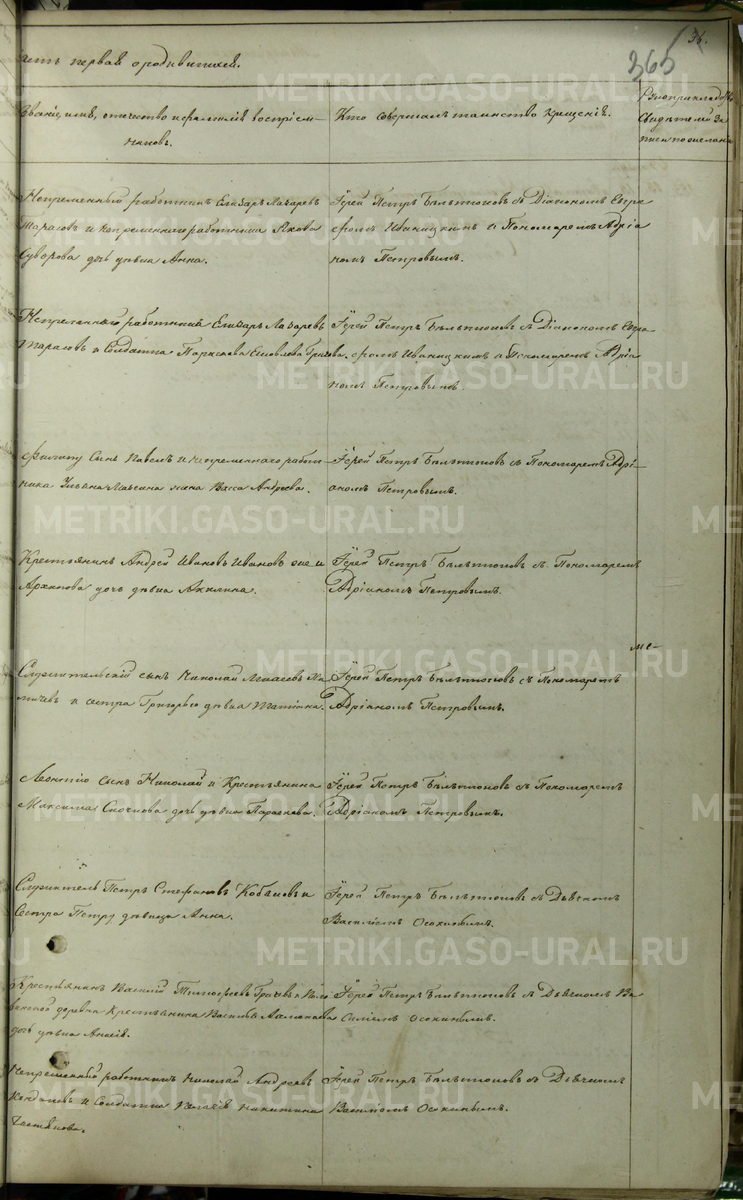 36.
365
часть первая о родившихся.
Званiе, имя, отчество и фамилiя воспрiем-
никовъ.
Кто совершалъ таинство крещенiя.
Рукоприкладство
свидетелей за
писи по желанiю
Непременный работникъ Елизаръ Лазаревъ
Тарасовъ и непременнаго работника Якова
Суворова дочь девица Анна.
Iерей Петръ Бельтюковъ съ Дiакономъ Евгра
фомъ Иваницкимъ и Пономаремъ Адрiа
номъ Петровымъ.
Непременный работникъ Елизаръ Лазаревъ
Тарасовъ и Солдатка Параскева Яковлева
Iерей Петръ Бельтюковъ съ Дiакономъ Евгра
фомъ Иваницкимъ и Пономаремъ Адрiа
номъ Петровымъ.
Филиппу сынъ Павелъ и непременнаго работ-
ника жена Васса Андреева.
Iерей Петръ Бельтюковъ съ Пономаремъ Адрi-
аномъ Петровымъ.
Крестьянинъ Андрей Ивановъ Ивановъ же и
Архипова дочь девица Акилина.
Iерей Петръ Бельтюковъ съ Пономаремъ
Адрiаномъ Петровымъ.
Служительскiй сынъ Николай
и сестра Григорью девица Татiана.
Iерей Петръ Бельтюковъ съ Пономаремъ
Адрiаномъ Петровымъ.
Леонтiю сынъ Николай и Крестьянина
Максима дочь девица Параскева.
Iерей Петръ Бельтюковъ съ Пономаремъ
Адрiаномъ Петровымъ.
Служитель Петръ Стефановъ и
сестра Петру девица Анна.
Iерей Петръ Бельтюковъ съ Дьячкомъ
Василiемъ Осокинымъ.
Крестьянинъ Василiй Тимофеевъ Грачевъ и
деревни Крестьянина Василья
дочь девица
Iерей Петръ Бельтюковъ съ Дьячкомъ Ва
силiемъ Осокинымъ.
Непременный работникъ Николай Андреевъ
и Солдатка Пелагiя Никитина
Iерей Петръ Бельтюковъ съ Дьячкомъ
Василiемъ Осокинымъ.
METRIKI.GASO-URAL.RU